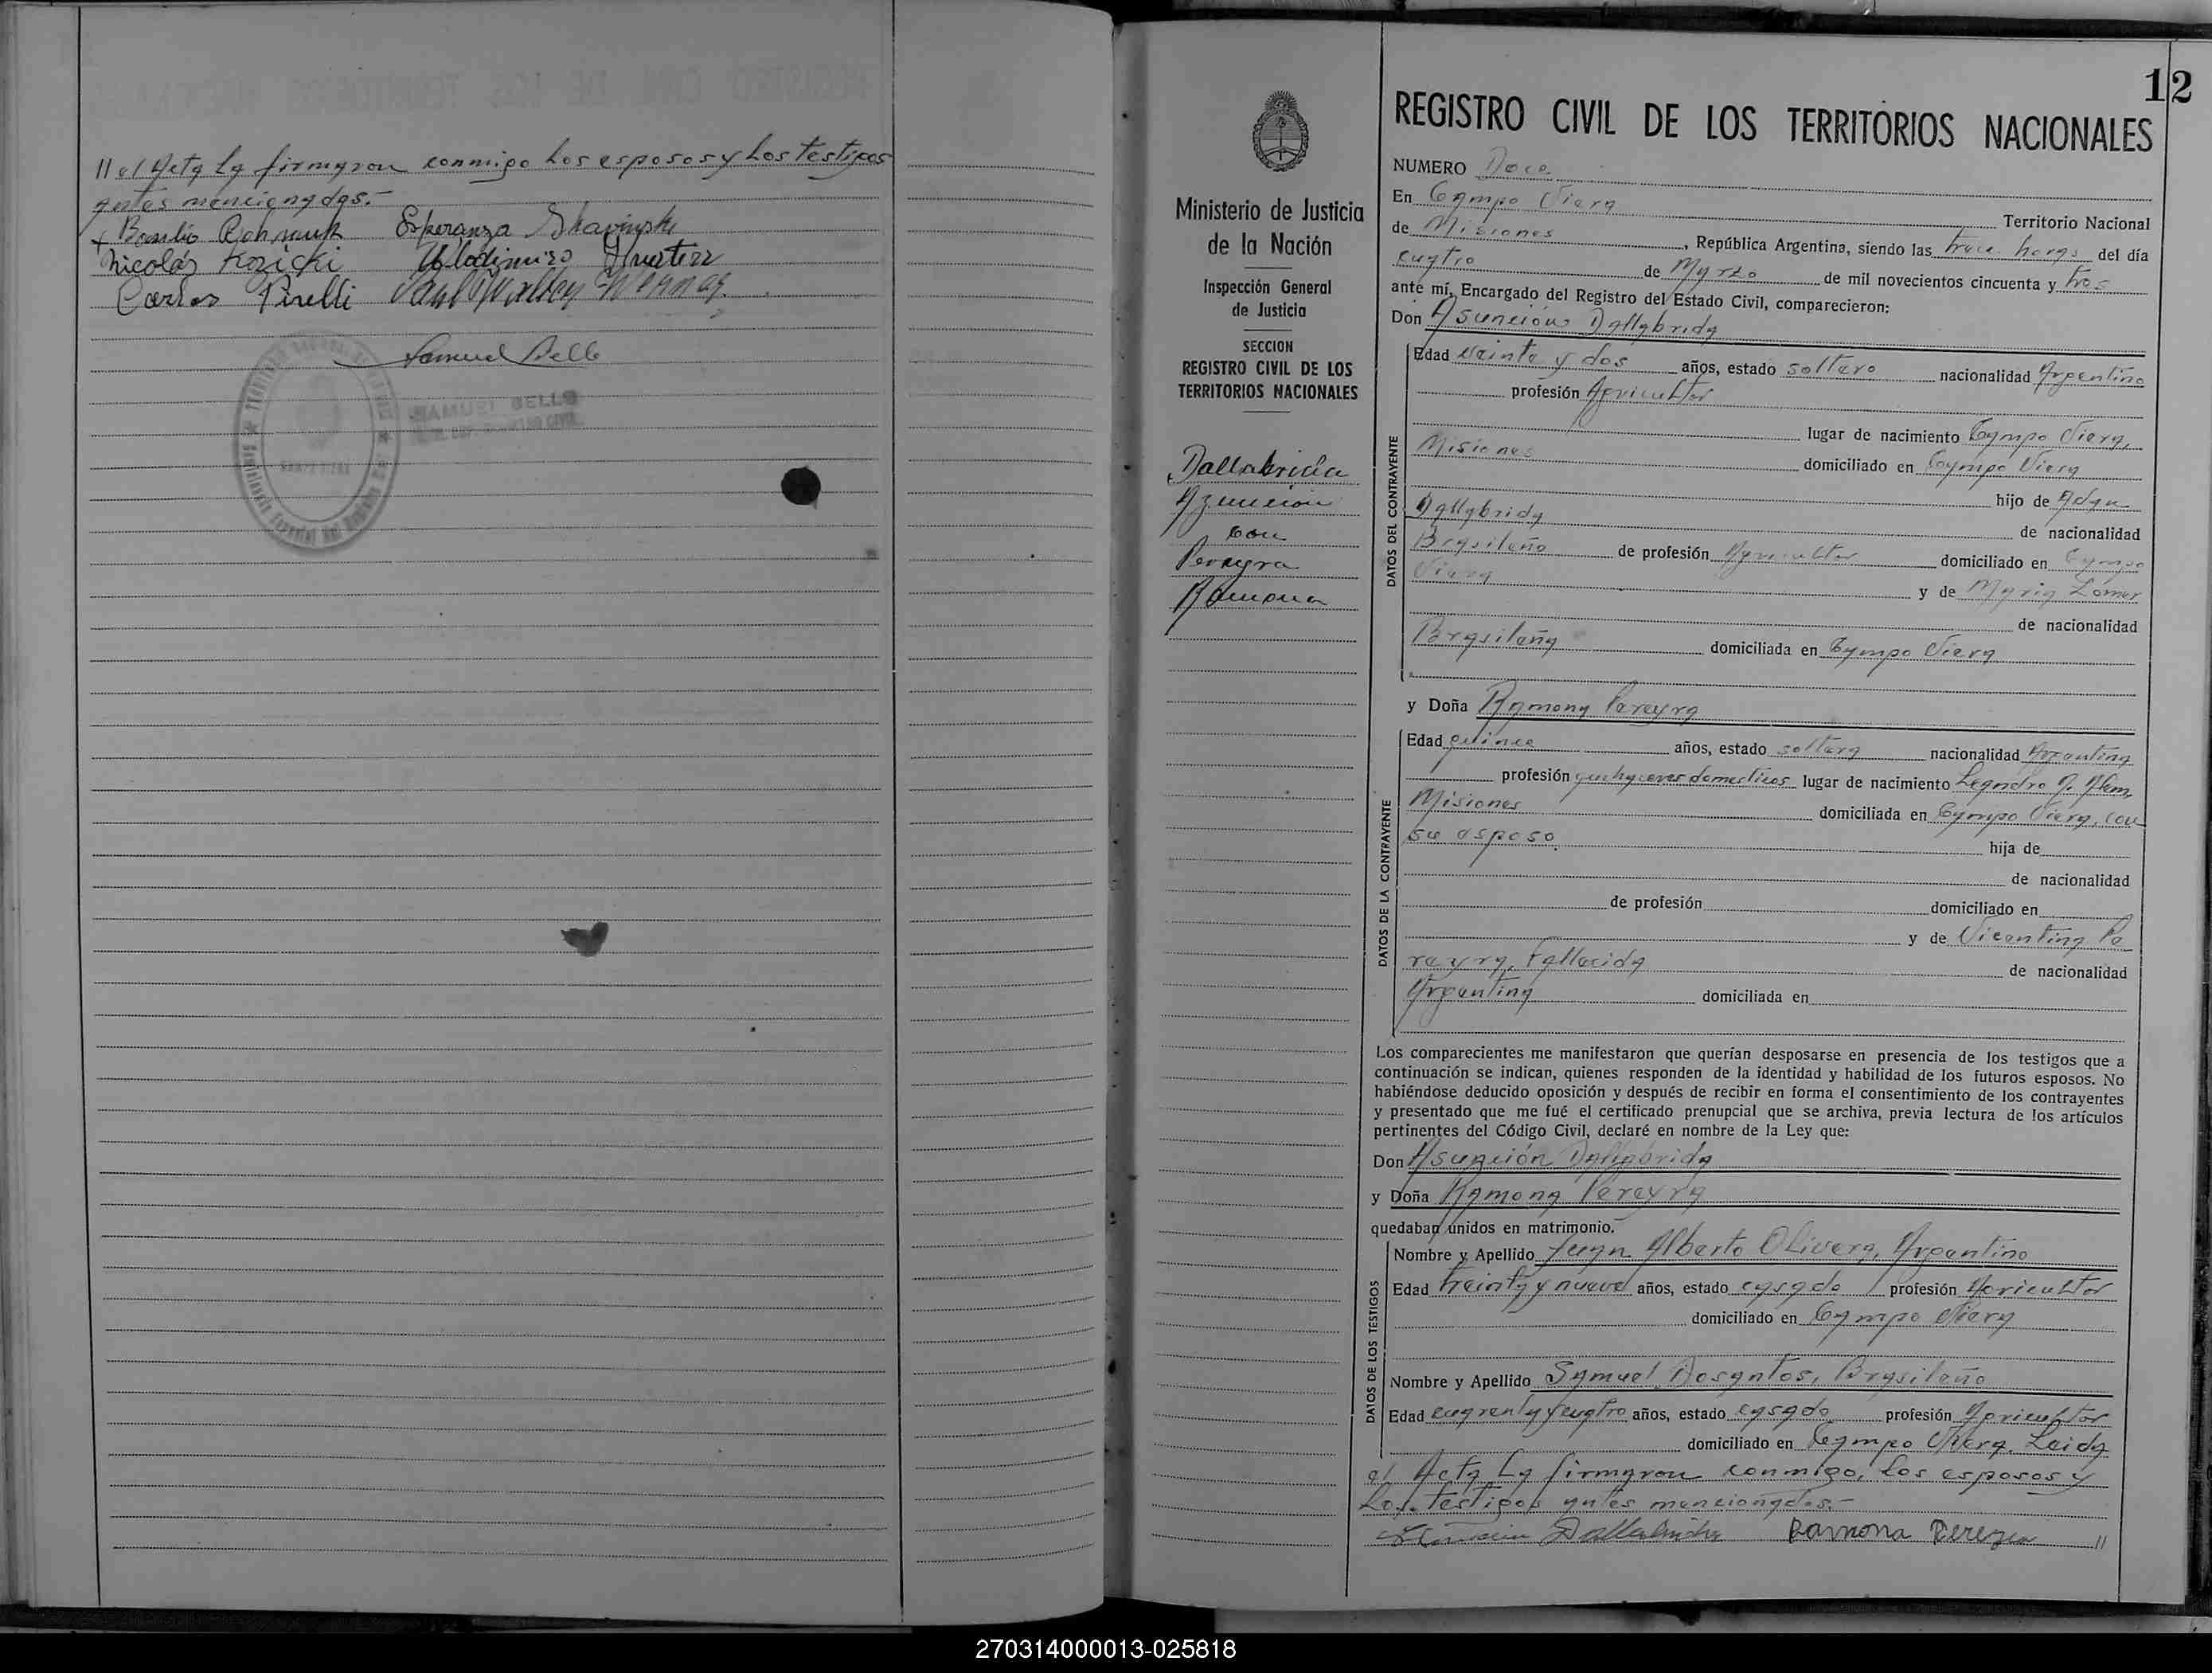 // el Acta La firmaron conmigo Los esposos y Los testigos
antes mencionadas.-
Basilio Esperanza
Nicolás Kozicki Wladimiro
Carlos Pirelli
Samuel Bello
SAMUEL BELLO
12
Ministerio de Justicia
de la Nación
Inspección General
de Justicia
SECCION
REGISTRO CIVIL DE LOS
TERRITORIOS NACIONALES
Dallabrida
Azunción
con
Pereyra
Ramona
REGISTRO CIVIL DE LOS TERRITORIOS NACIONALES
NUMERO Doce
En Campo Viera Territorio Nacional
de Misiones, República Argentina, siendo las trece horas del día
cuatro de Marzo de mil novecientos cincuenta y tres
ante mí, Encargado del Registro del Estado Civil, comparecieron:
Don Asunción Dallabrida
DATOS DEL CONTRAYENTE
Edad veinte y dos años, estado soltero nacionalidad Argentino
profesión Agricultor
lugar de nacimiento Campo Viera,
Misiones domiciliado en Campo Viera
hijo de Adan
Dallabrida de nacionalidad
Brasileño de profesión Agricultor domiciliado en Campo
Viera y de Maria
de nacionalidad
Brasileña domiciliada en Campo Viera
y Doña Ramona Pereyra
DATOS DE LA CONTRAYENTE
Edad quince años, estado soltera nacionalidad Argentina
profesión quehaceres domesticos lugar de nacimiento Leandro N. Alem,
Misiones domiciliada en Campo Viera, con
su esposo hija de
de nacionalidad
de profesión domiciliado en
y de Vicentina Pe
reyra, Fallecida de nacionalidad
Argentina domiciliada en
Los comparecientes me manifestaron que querían desposarse en presencia de los testigos que a
continuación se indican, quienes responden de la identidad y habilidad de los futuros esposos. No
habiéndose deducido oposición y después de recibir en forma el consentimiento de los contrayentes
y presentado que me fué el certificado prenupcial que se archiva, previa lectura de los artículos
pertinentes del Código Civil, declaré en nombre de la Ley que:
Don Asunción Dallabrida
y Doña Ramona Pereyra
quedaban unidos en matrimonio.
DATOS DE LOS TESTIGOS
Nombre y Apellido Juan Alberto Olivera, Argentino
Edad treinta y nueve años, estado casado profesión Agricultor
domiciliado en Campo Viera
Nombre y Apellido Samuel Dosantos, Brasileño
Edad cuarenta y cuatro años, estado casado profesión Agricultor
domiciliado en Campo Viera. Leida
el Acta La firmaron conmigo, Los esposos y
Los testigos antes mencionados.-
Dallabrida Ramona Pereyra //
270314000013-025818